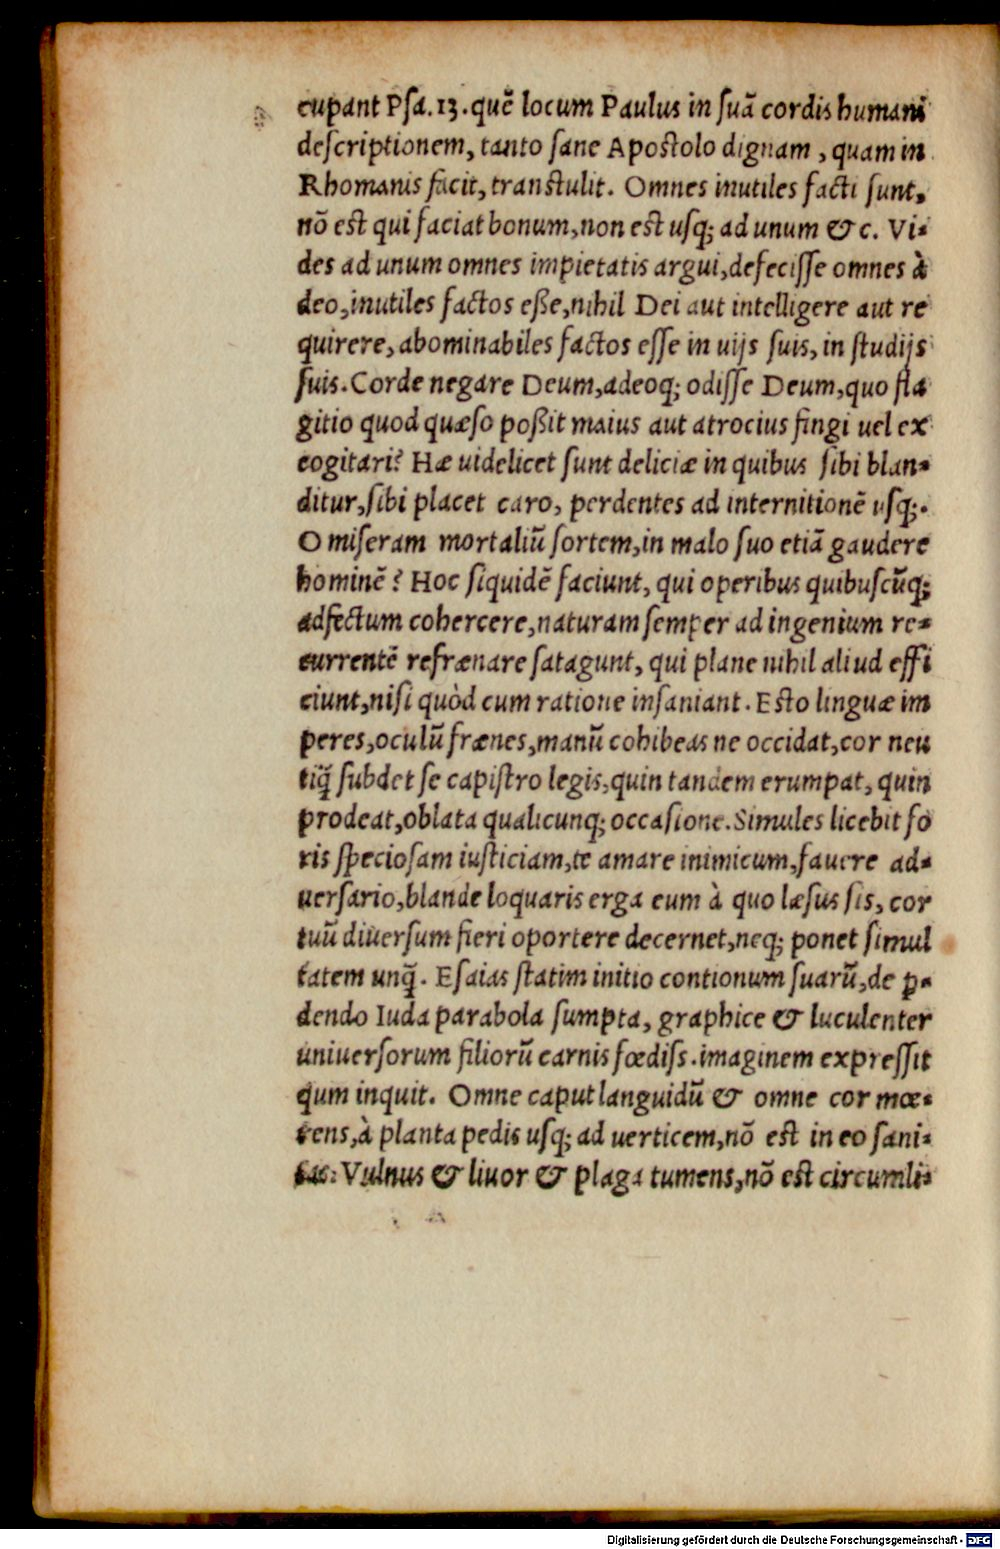 cupant Psa.13.quē locum Paulus in suā cordis humani
descriptionem, tanto sane Apostolo dignam, quam in
Rhomanis facit, transtulit. Omnes inutiles facti sunt,
nō est qui faciat bonum,non est usq; ad unum & c. Vi-
des ad unum omnes impietatis argui,defecisse omnes à
deo,inutiles factos eße,nihil Dei aut intelligere aut re
quirere,abominabiles factos esse in uijs suis, in studijs
suis.Corde negare Deum,adeoq; odisse Deum,quo fla
gitio quod quæso poßit maius aut atrocius fingi uel ex
cogitari? Hæ uidelicet sunt deliciæ in quibus sibi blan-
ditur,sibi placet caro, perdentes ad internitionē usq;.
O miseram mortaliū sortem,in malo suo etiā gaudere
hominē? Hoc siquidē faciunt, qui operibus quibuscūq;
adfectum cohercere,naturam semper ad ingenium re-
currentē refrænare satagunt, qui plane nihil aliud effi
ciunt,nisi quòd cum ratione insaniant. Esto linguæ im
peres,oculū frænes,manū cohibeas ne occidat,cor neu
tiq̃ subdet se capistro legis,quin tandem erumpat, quin
prodeat,oblata qualicunq; occasione.Simules licebit fo
ris speciosam iusticiam,te amare inimicum,fauere ad-
uersario,blande loquaris erga eum à quo læsus sis, cor
tuū diuersum fieri oportere decernet,neq; ponet simul
tatem unq̃. Esaias statim initio contionum suarū,de ꝑ-
dendo Iuda parabola sumpta, graphice & luculenter
uniuersorum filiorū carnis fœdiss.imaginem expressit
qum inquit. Omne caput languidū & omne cor mœ-
rens,à planta pedis usq; ad uerticem,nō est in eo sani-
tas: Vulnus & liuor & plaga tumens,nō est circumli-
Digitalisierung gefördert durch die Deutsche Forschungsgemeinschaft - DFG